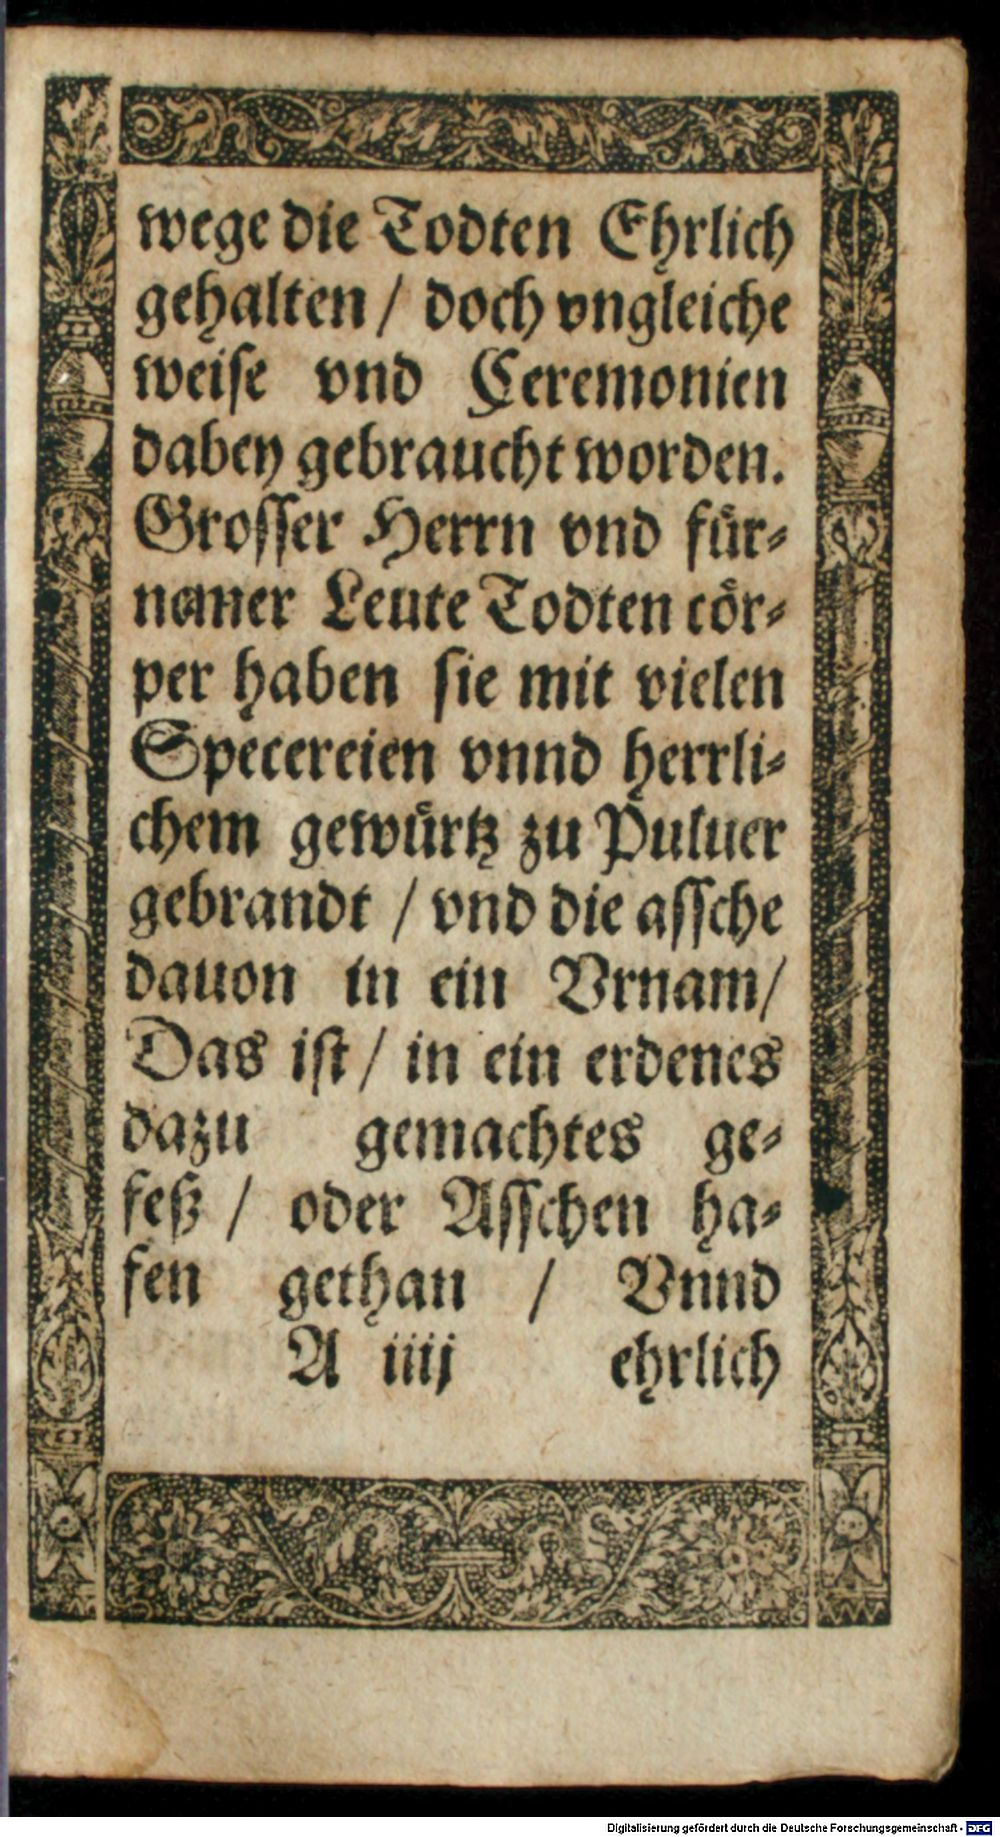 wege die Todten Ehrlich
gehalten / doch vngleiche
weise vnd Ceremonien
dabey gebraucht worden.
Grosser Herrn vnd für-
nemer Leute Todten cör-
per haben sie mit vielen
Specereien vnnd herrli-
chem gewürtz zu Puluer
gebrandt / vnd die assche
dauon in ein Vrnam/
Das ist / in ein erdenes
dazu gemachtes ge-
feß / oder Asschen ha-
fen gethan / Vnnd
A iiij ehrlich
Digitalisierung gefördert durch die Deutsche Forschungsgemeinschaft - DFG